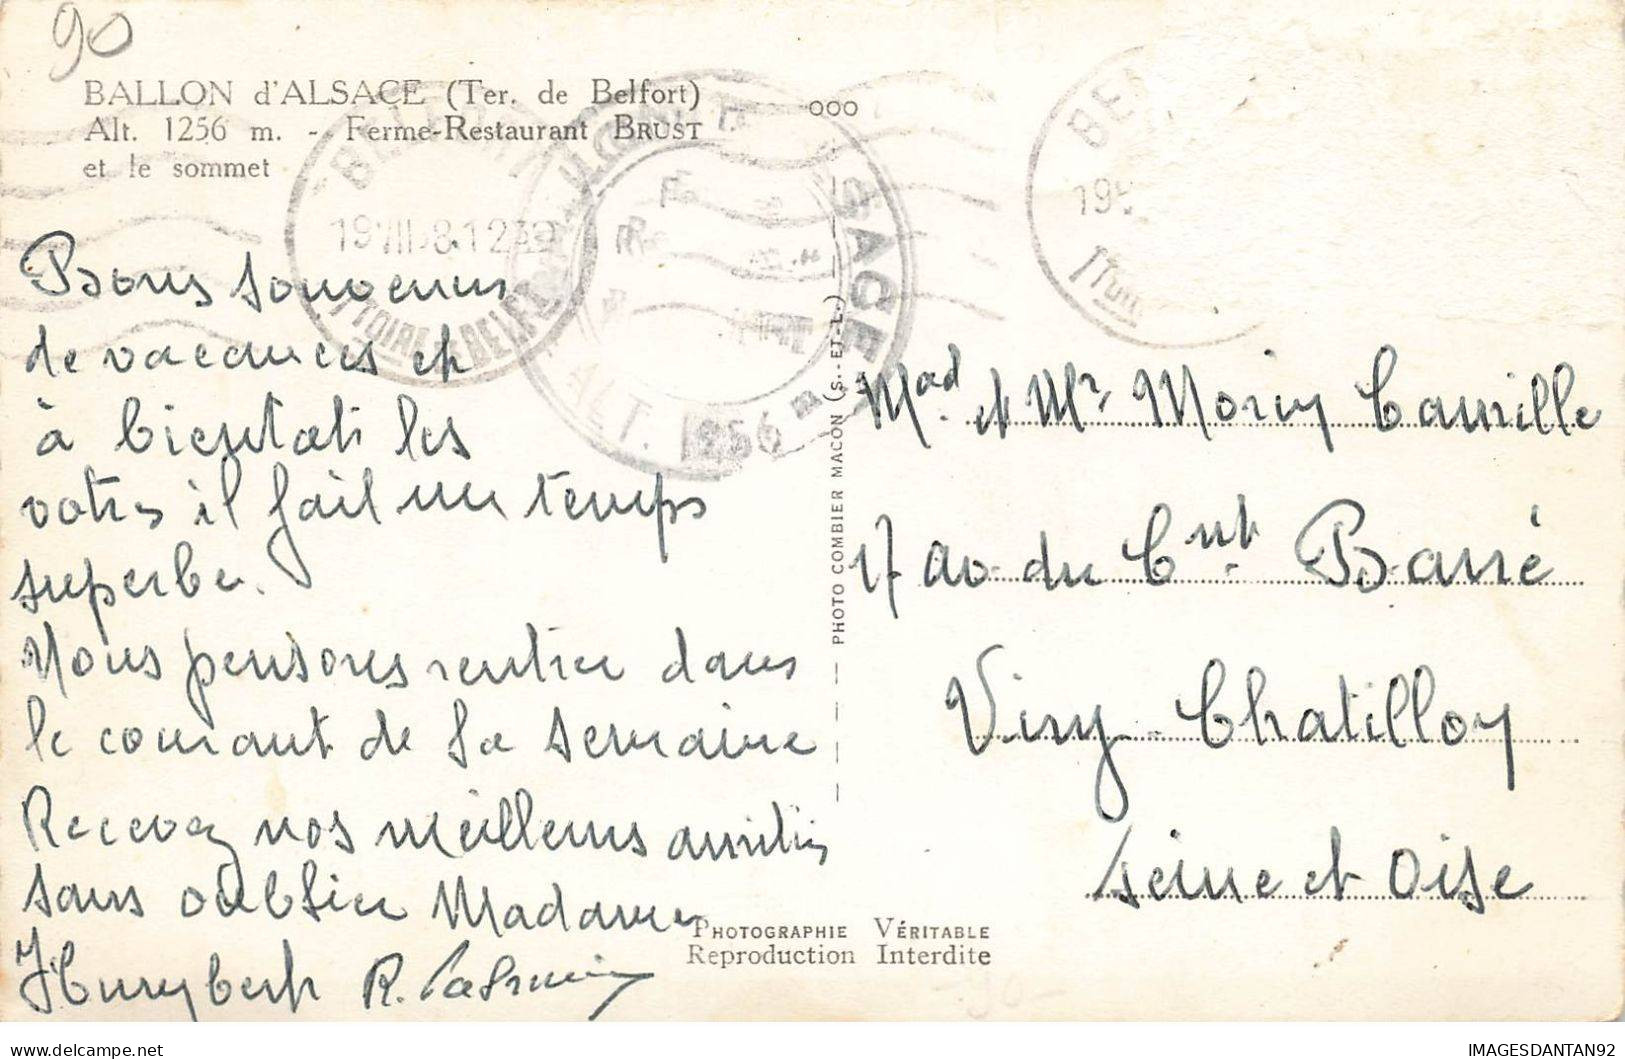 90
BALLON d'ALSACE (Ter. de Belfort)
Alt. 1256 m. - Ferme-Restaurant BRUST
et le sommet
OOO
ALT. 1256 m
Bons souvenirs
de vacances et
à bientôt les
votres il fait un temps
superbe.
Nous pensons rentrer dans
le courant de la semaine
Recevez nos meilleurs amitiés
sans oublier Madame
R.
PHOTO COMBIER MACON (S.-ET-L.)
Mad et Mr Morin Camille
17 av. du Cnt Barré
Viry-Chatillon
Seine et Oise
PHOTOGRAPHIE VÉRITABLE
Reproduction Interdite
delcampe.net
IMAGESDANTAN92